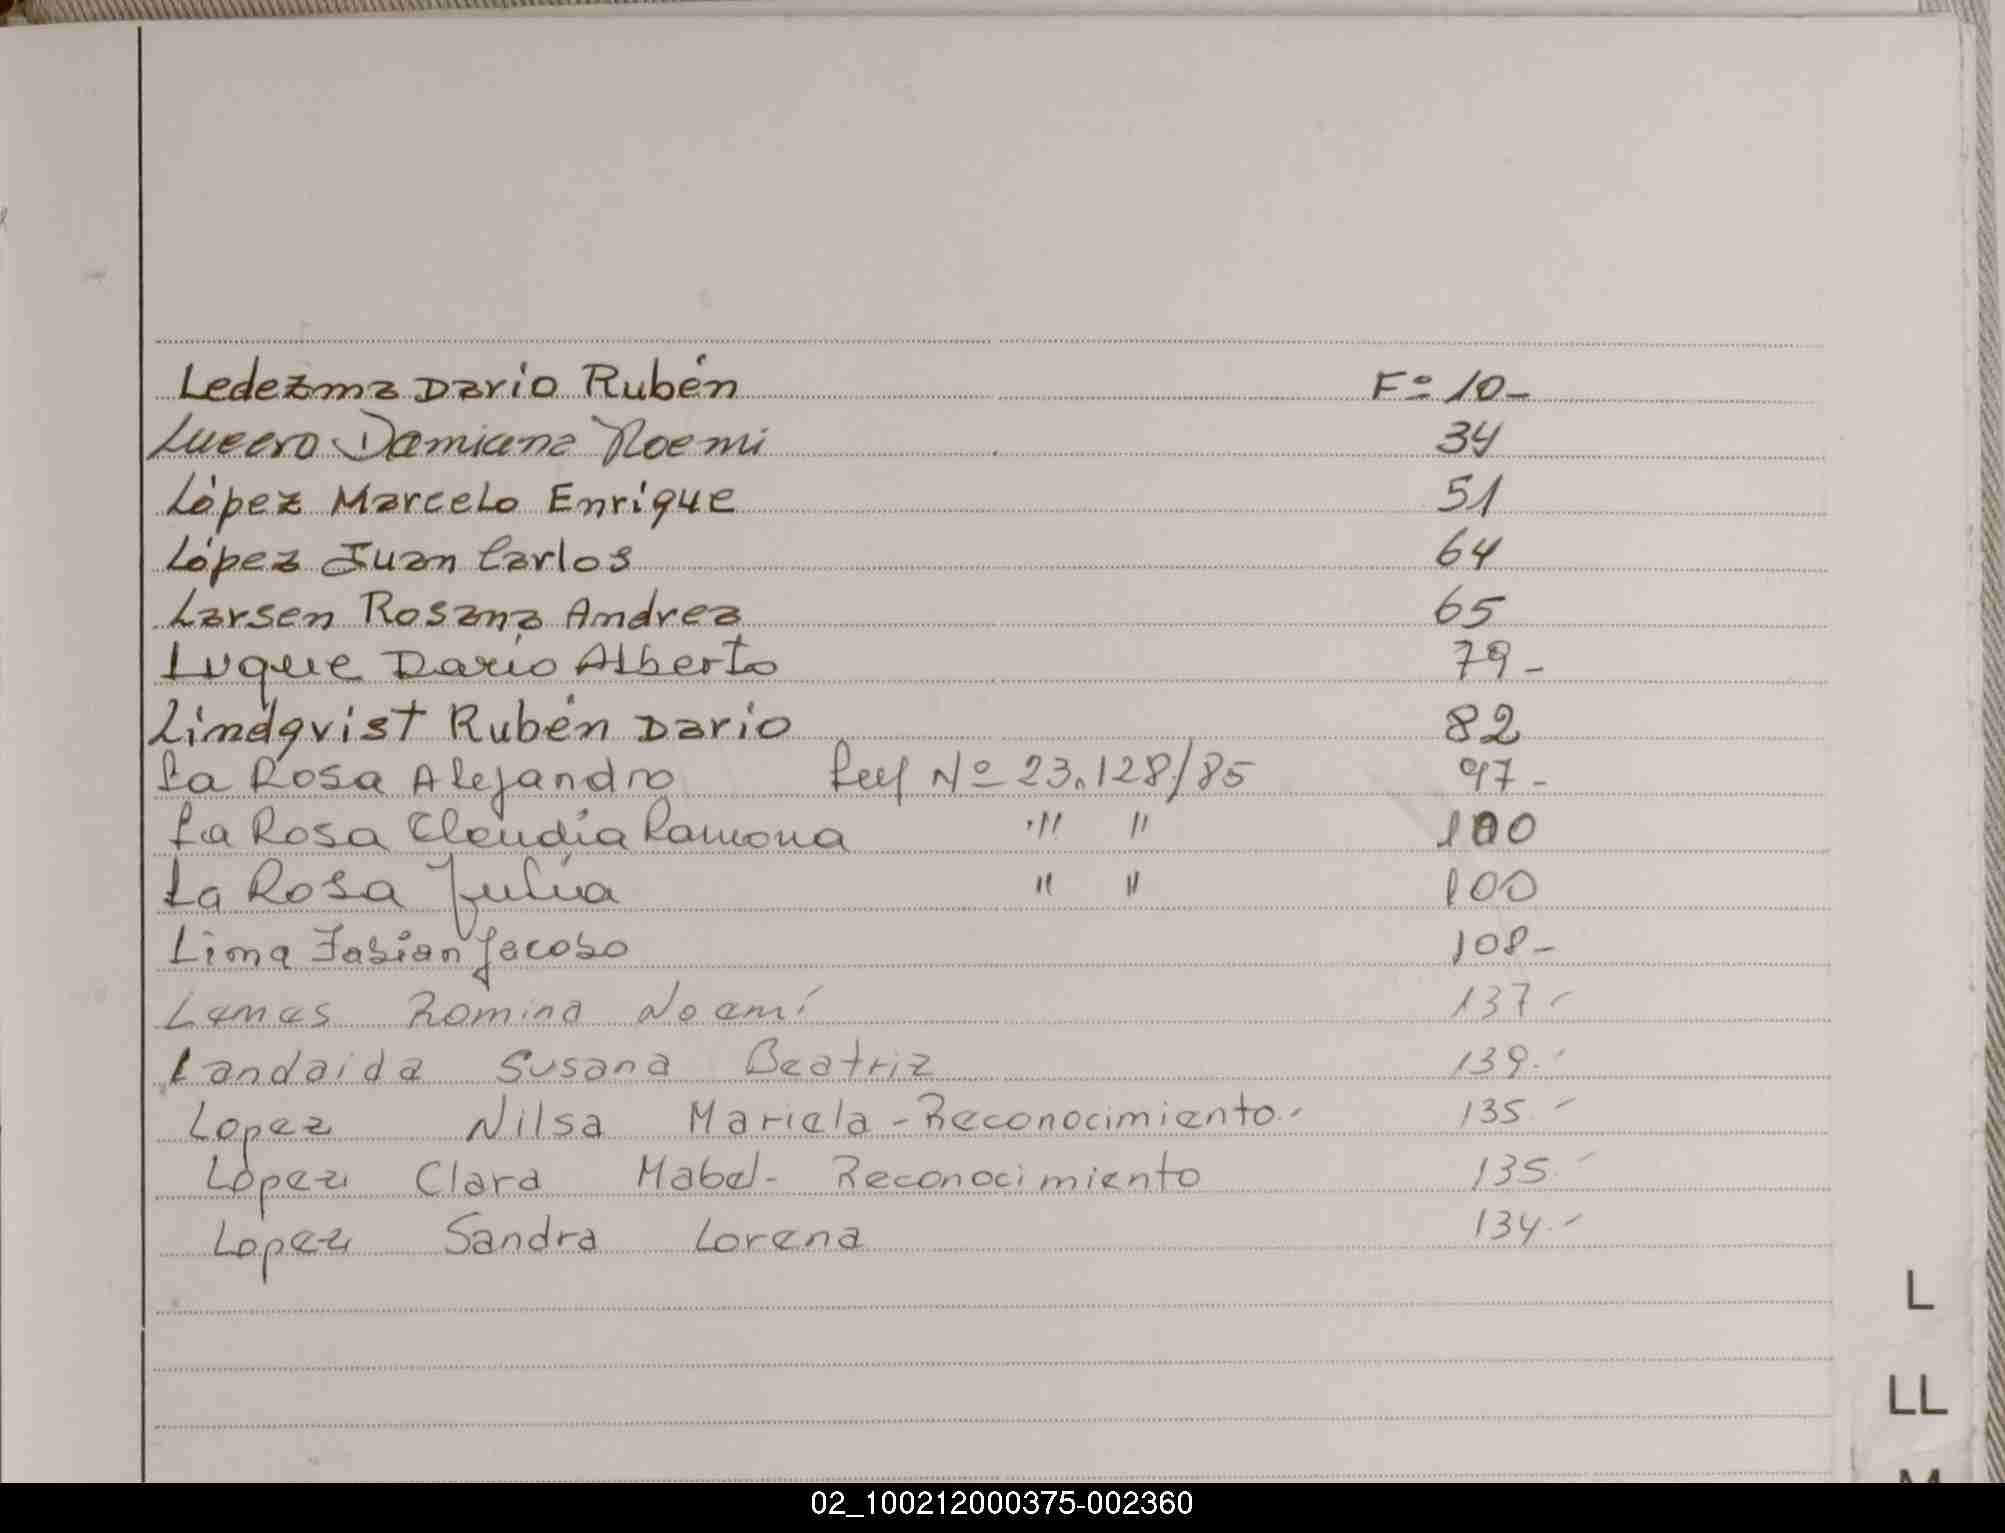 Ledezma Dario Rubén F° 10-
Lucero Damiana Noemi 34
López Marcelo Enrique 51
López Juan Carlos 64
Larsen Rosana Andrea 65
Luque Dario Alberto 79-
Lindqvist Rubén Dario 82
La Rosa Alejandro N° 23.128/85 97-
La Rosa Claudia Ramona " " 100
La Rosa Julia " " 100
Lima Fabian Jacobo 108-
Lemes Romina Noemí 137-
Landaida Susana Beatriz 139.-
Lopez Nilsa Mariela - Reconocimiento.- 135.-
López Clara Mabel - Reconocimiento 135.-
Lopez Sandra Lorena 134.-
L
LL
M
02_100212000375-002360